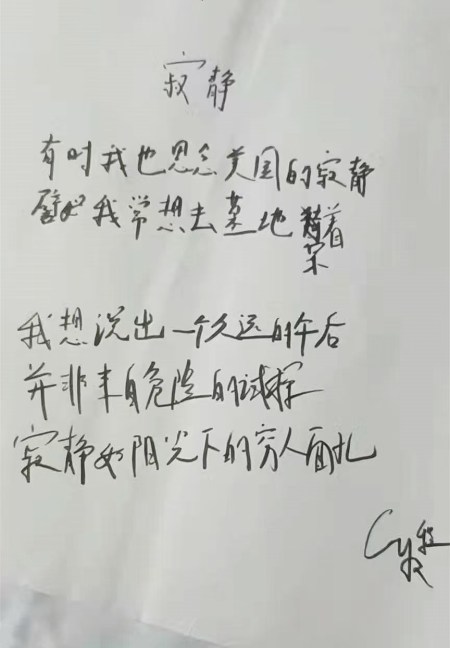 寂静
有时我也思念美国的寂静
譬如我常想去墓地着
我想说出一个久远的午后
并非来自危险的试探
寂静如阳光下的穷人面孔